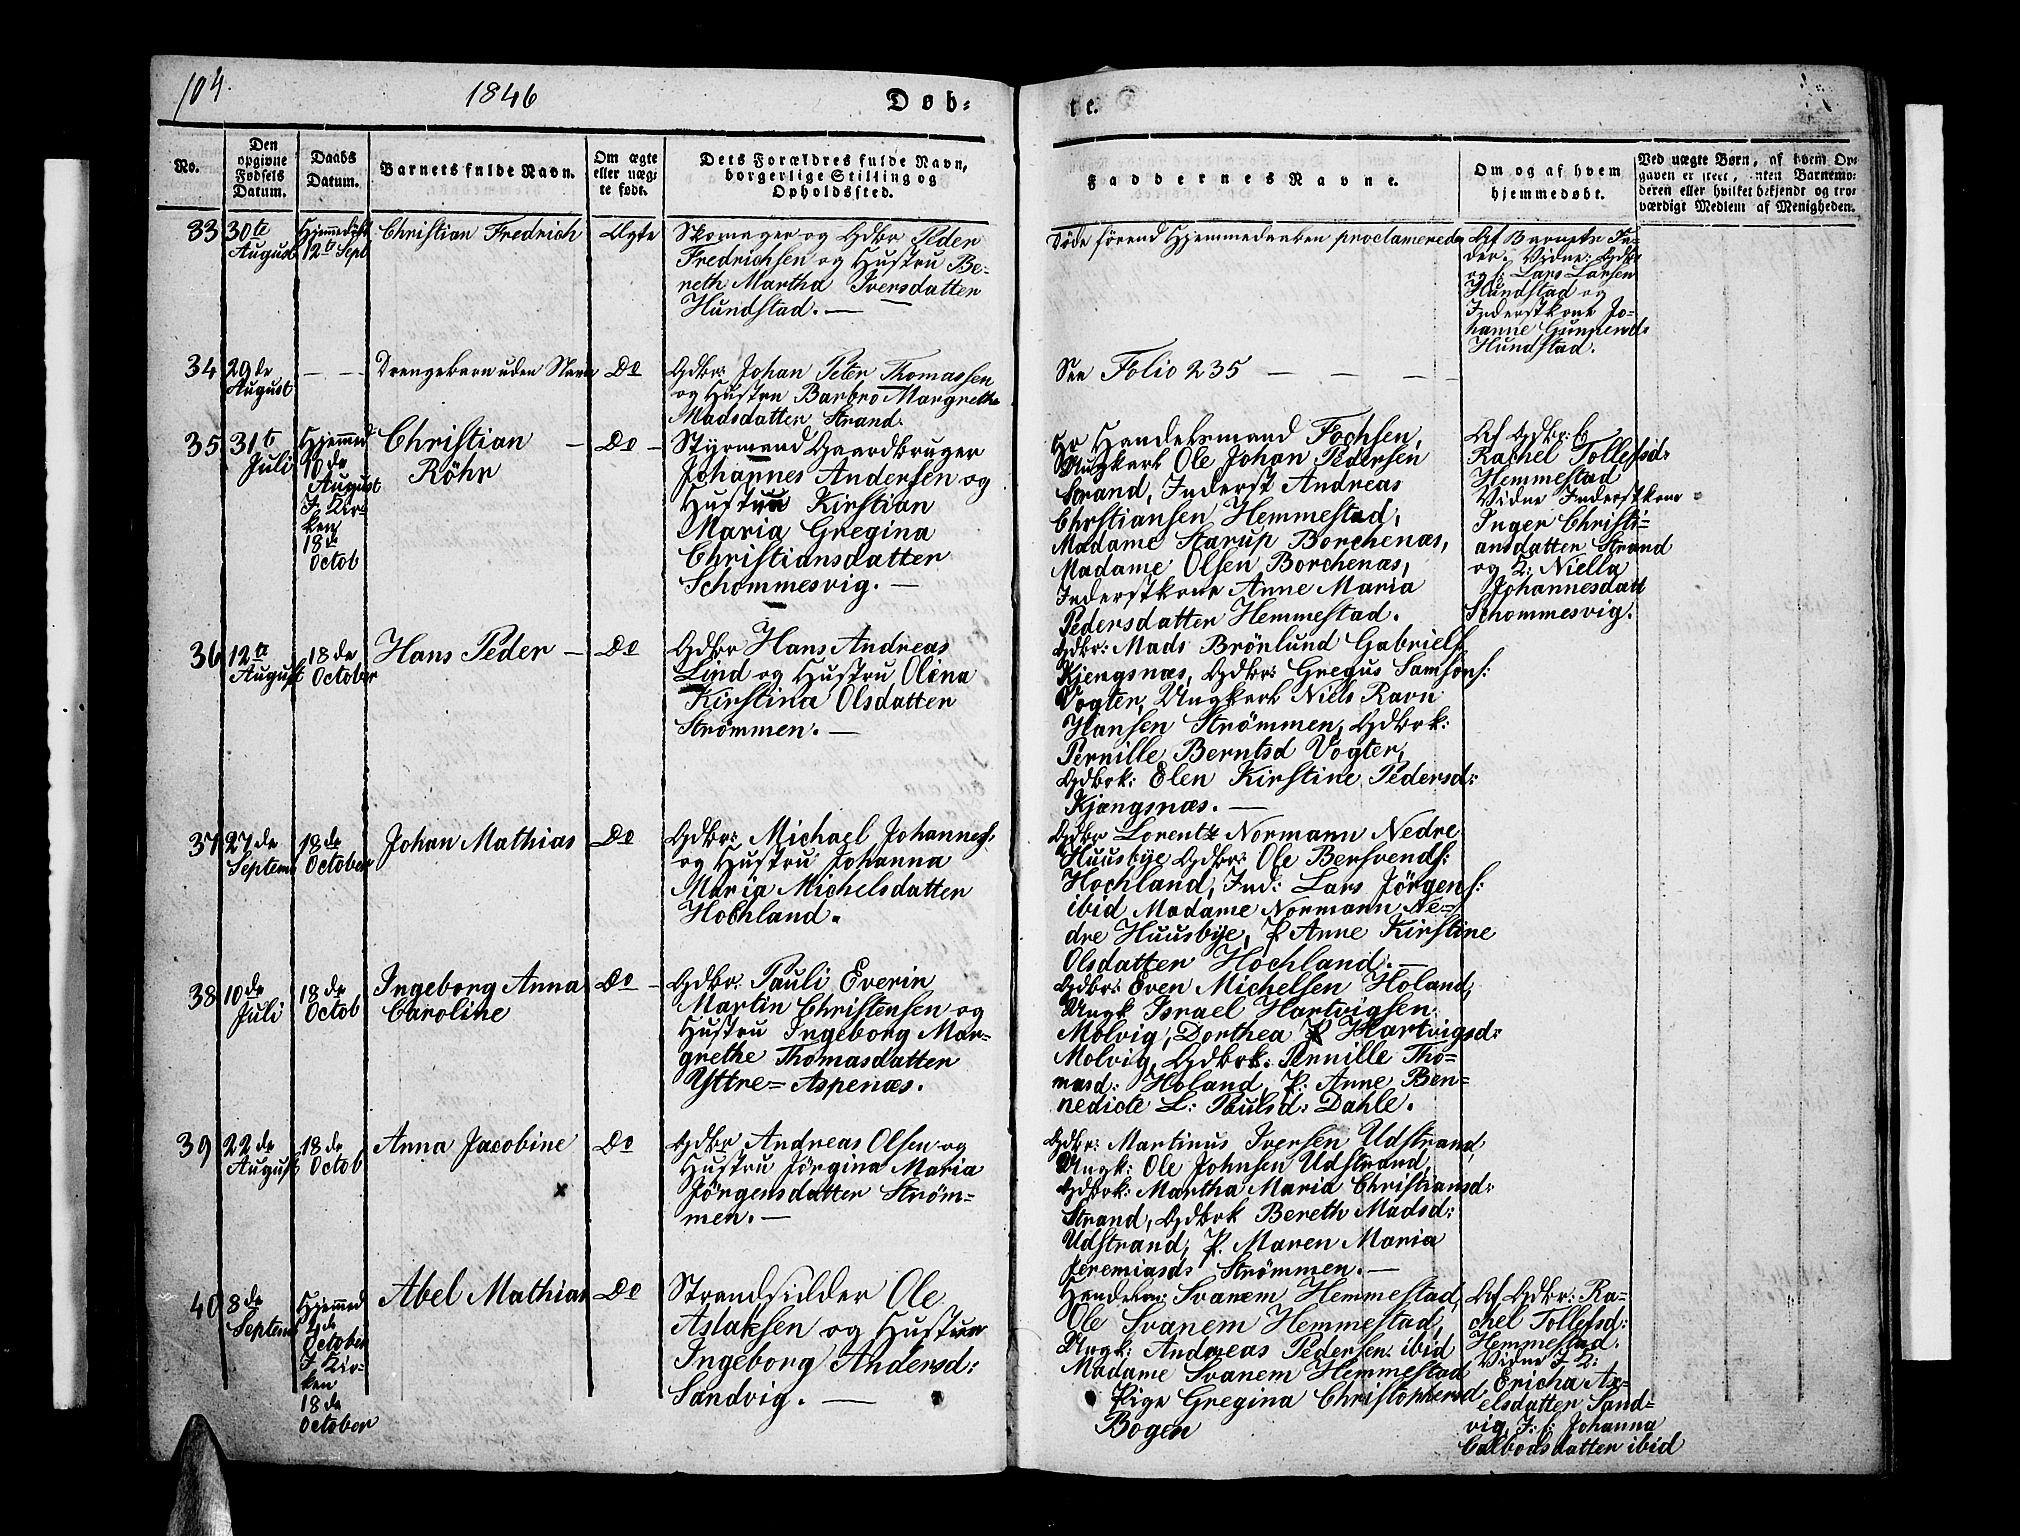 104.
1846
Døb-
te.
No.
Den
opgivne
Fødsels
Datum.
Daabs
Datum.
Barnets fulde Navn.
Om ægte
eller uæg-
te født.
Dets Forældres fulde Navn,
borgerlige Stilling og
Opholdssted.
Faddernes Navne.
Om og af hvem
hjemmedøbt.
Ved uægte Børn, af hvem Op-
gaven er skeet, enten Barnemo-
deren eller hvilket bekjendt og tro-
værdigt Medlem af Menigheden.
33
30te
August
Hjemmedøbt
12te Sept
Christian Fredrich
Ægte
Skomager og Gdbr Peder
Fredrichsen og Hustru Be-
reth Martha Iversdatter
Hundstad. —
Døde førend Hjemmedaaben proclameredes
Af Barnets Fa-
der. Vidne: Gdbr
og f: Lars Larsen
Hundstad og
Inderstkone Jo-
hanne Gunnersd:
Hundstad.
34
29de
August
— —
Drengebarn uden Navn
Do
Gdbr: Johan Peter Thomassen
og Hustru Barbro Margrethe
Madsdatter Strand.
See Folio 235 — — —
35
31te
Juli
Hjemmed
10de
August
I Kir-
ken
18de
Octob
Christian —
Röhr
Do —
Styrmand Gaardbruger
Johannes Andersen og
Hustrue Kirstian
Maria Gregina
Christiansdatter
Schommesvig. —
Hr Handelsmand Fochsen,
Ungkarl Ole Johan Pedersen
Strand, Inderst Andreas
Chrstiansen Hemmestad,
Madame Starup Borchenæs,
Madame Olsen Borchenæs,
Inderstkone Anne Maria
Pedersdatter Hemmestad.
Af Gdbr:
Rachel Tollefsd:
Hemmestad
Vidne Inderstkone
Inger Christi-
ansdatter Strand
og Niella
Johannesdatt
Schommesvig.
36
12te
August
18de
October
Hans Peder —
Do
Gdbr Hans Andreas
Lind og Hustru Olina
Kirstina Olsdatter
Strømmen. —
Gdbr: Mads Brönlund Gabriels:
Kjengsnæs, Gdbr: Gregus Samsons:
Vogter, Ungkarl Niels Ravn
Hansen Strömmen, Gdbrk:
Pernille Berntsd Vogter,
Gdbrk: Elen Kirstine Pedersd:
Kjængsnæs. —
37
27de
Septemb
18de
October
Johan Mathias
Do
Gdbr: Michael Johannes:
og Hustru Johanna
Maria Michelsdatter
Hochland.
Gdbr Lorentz Normann Nedre
Huusbye Gdbr: Ole Bersvends:
Hochland, Ind: Lars Jörgens:
ibid Madame Normann Ne-
dre Huusbye, P Anne Kirstine
Olsdatter Hochland. —
38
10de
Juli
18de
Octob
Ingeborg Anna
Caroline
Do —
Gdbr: Pauli Everin
Martin Christensen og
Hustru Ingeborg Mar-
grethe Thomasdatter
Yttre-Aspenæs.
Gdbr: Even Michelsen Holand,
Ungk Israel Hartvigsen
Molvig, Dorthea P Hartvigsd:
Molvig, Gdbrk: Pernille Tho-
masd: Holand, P: Anne Ben-
nedicte L: Paulsd: Dahle.
39
22de
August
18de
Octob
Anna Jacobine
x
Do
Gdbr Andreas Olsen og
Hustru Jørgina Maria
Jörgensdatter Ström-
men. —
Gdbr: Martinus Iversen Udstrand,
Ungk: Ole Johnsen Udstrand,
Gdbrk: Martha Maria Christiansd:
Strand, Gdbrk Bereth Madsd:
Udstrand, P. Maren Maria
Jeremiasds Strömmen. —
40
8de
Septemb
Hjemmed
4de
October
I Kir-
ken
18de
October
Abel Mathias
Do
Strandsidder Ole
Aslaksen og Hustrue
Ingeborg Andersd:
Sandvig. —
Handelsm: Svanem Hemmestad,
Ole Svanem Hemmestad,
Ungk: Andreas Pedersen ibid
Madame Svanem Hemmestad
Pige Gregina Christophersd
Bogen
Af Gdbr: Ra-
chel Tollefsd:
Hemmestad.
Vidne I K:
Ericha Ax-
elsdatter Sand-
vig, I. f: Johanna
Calbodsdatter ibid